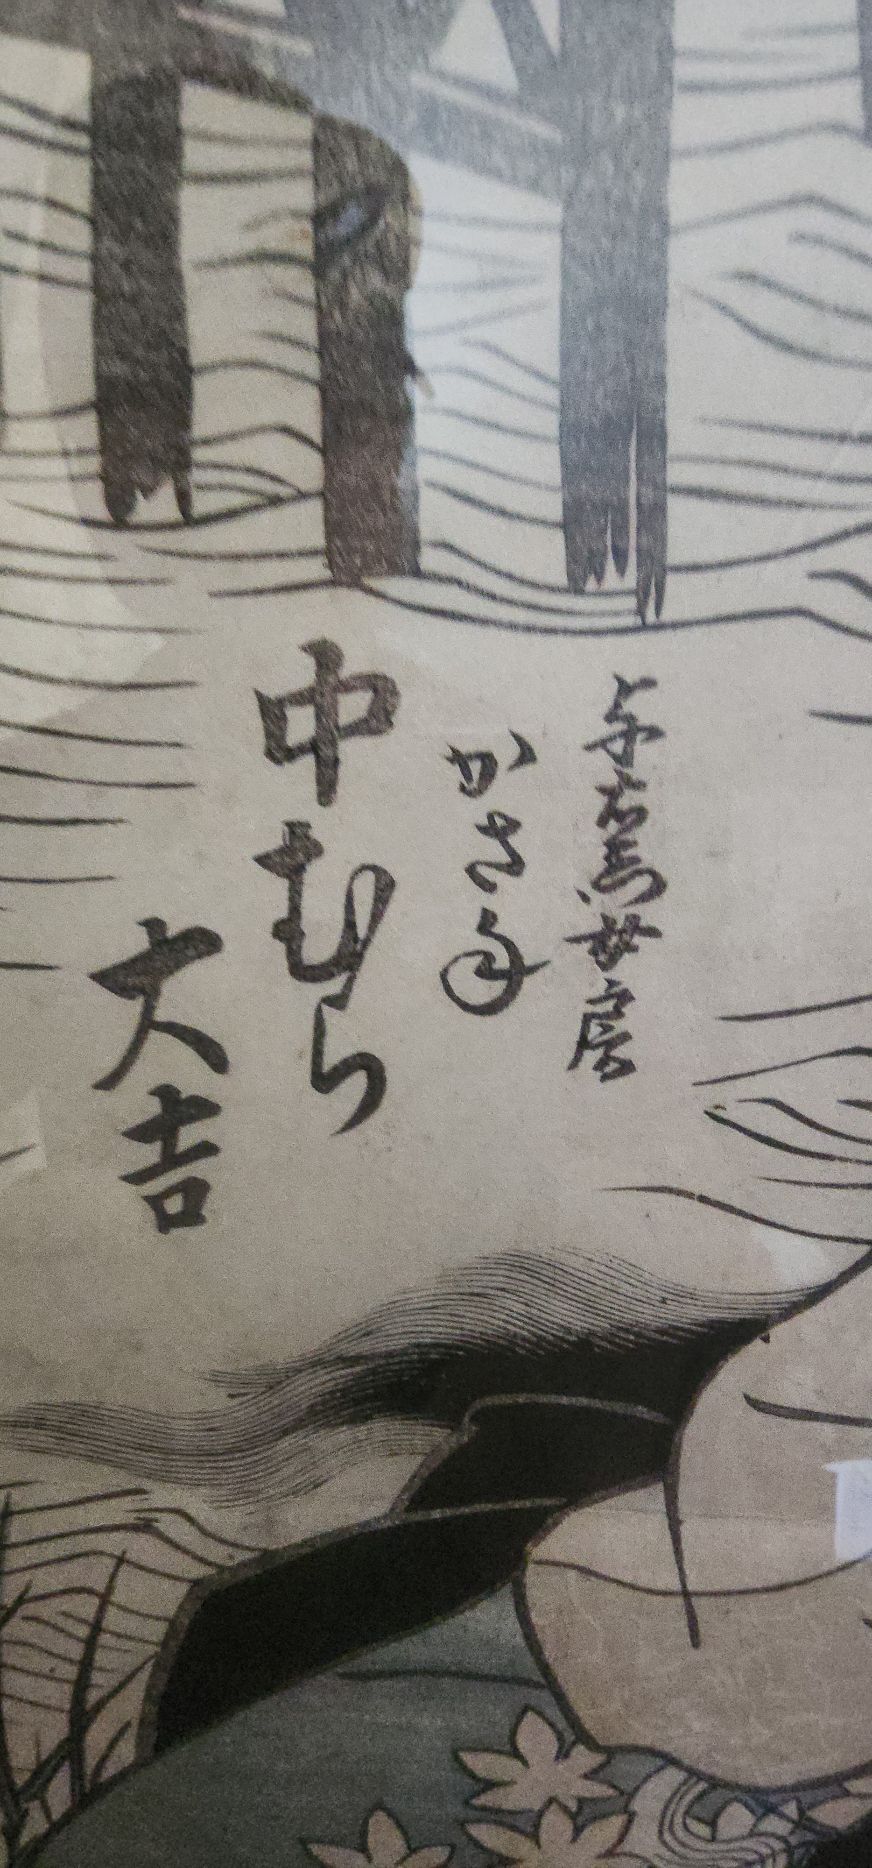 与右衛門女房
かさね
中むら
大吉